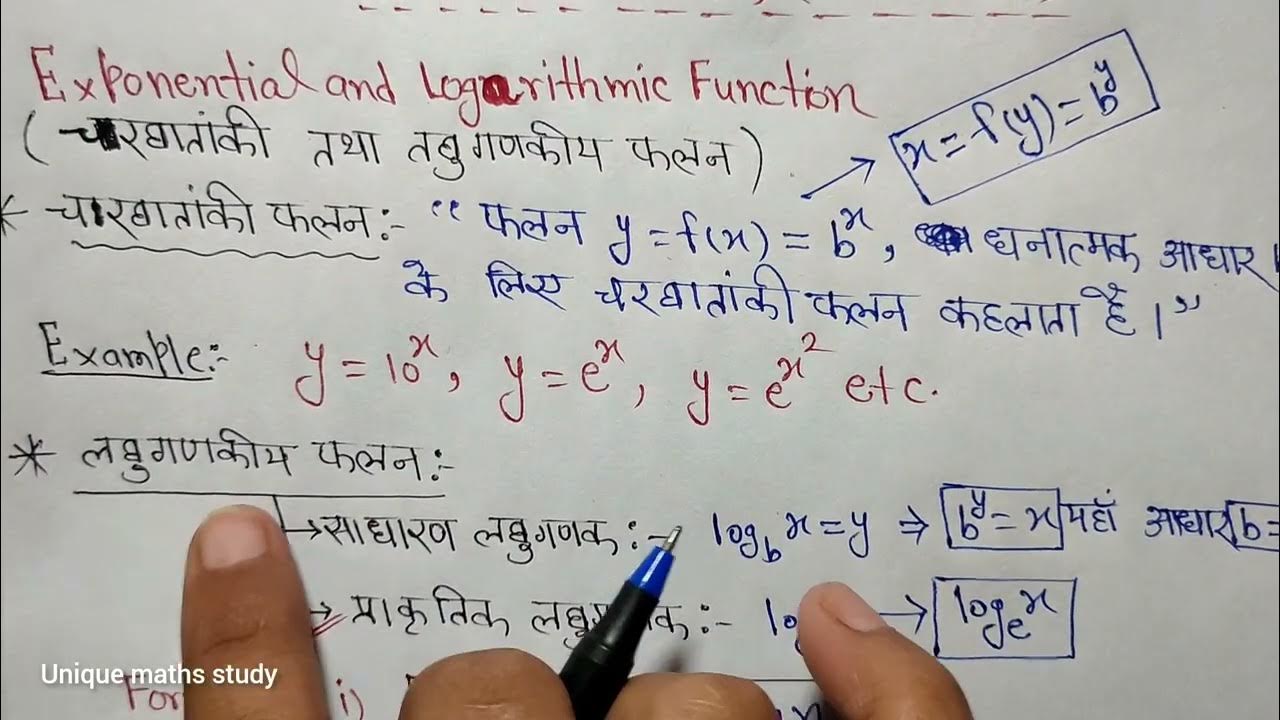 Exponential and Logarithmic Function
(चरघातांकी तथा लघुगणकीय फलन)
x = f(y) = b^y
* चरघातांकी फलन:- “ फलन y = f(x) = b^x, धनात्मक आधार
के लिए चरघातांकी फलन कहलाता है।”
Example:- y = 10^x, y = e^x, y = e^x^2 etc.
* लघुगणकीय फलन:-
→ साधारण लघुगणक:- log_b x = y ⇒ b^y = x यहाँ आधार b =
→ प्राकृतिक लघुगणक:- → log_e x
i)
Unique maths study